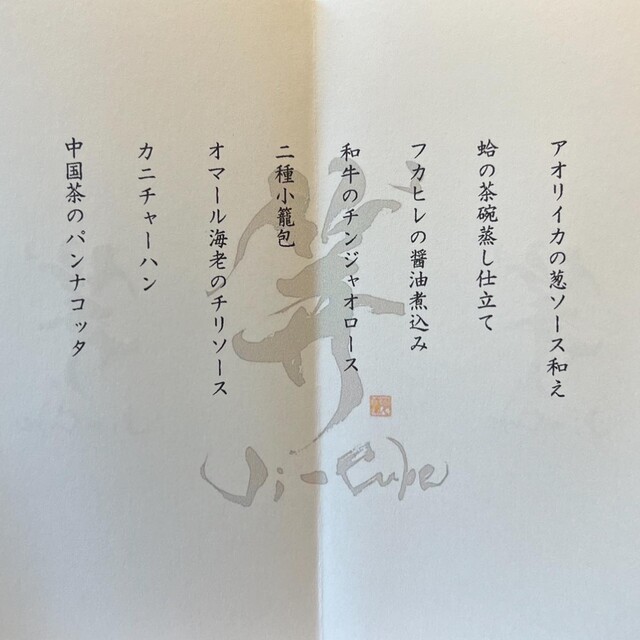 アオリイカの葱ソース和え
蛤の茶碗蒸し仕立て
フカヒレの醤油煮込み
和牛のチンジャオロース
二種小籠包
オマール海老のチリソース
カニチャーハン
中国茶のパンナコッタ
Ji-Cube